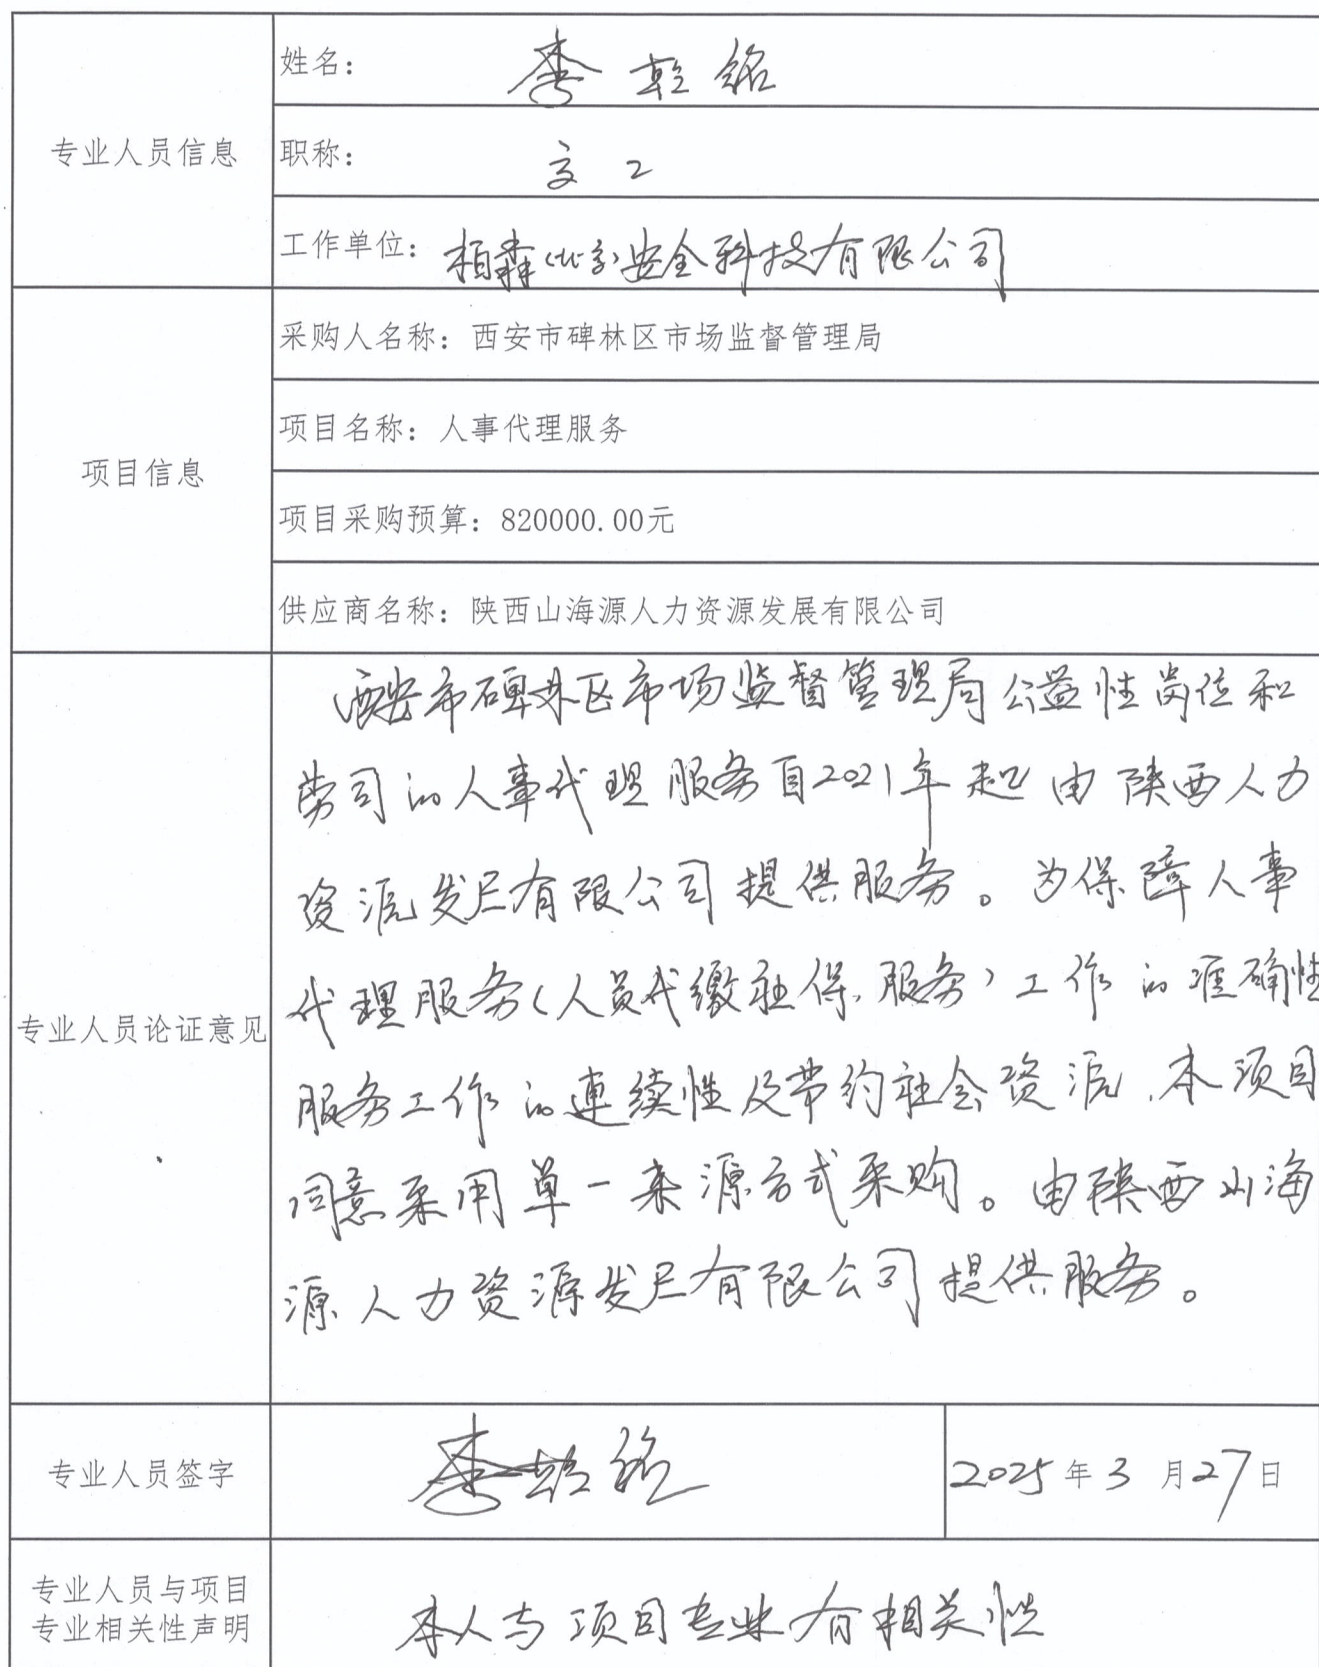 姓名： 李乾铭
职称： 高工
工作单位： 柏森（北京）安全科技有限公司
专业人员信息
采购人名称：西安市碑林区市场监督管理局
项目名称：人事代理服务
项目采购预算：820000.00元
供应商名称：陕西山海源人力资源发展有限公司
项目信息
西安市碑林区市场监督管理局公益性岗位和
劳司的人事代理服务自2021年起由陕西人力
资源发展有限公司提供服务。为保障人事
代理服务（人员代缴社保服务）工作的准确性
服务工作的连续性及节约社会资源，本项目
同意采用单一来源方式采购。由陕西山海
源人力资源发展有限公司提供服务。
专业人员论证意见
专业人员签字 李乾铭 2025年3月27日
专业人员与项目
专业相关性声明
本人与项目专业有相关性